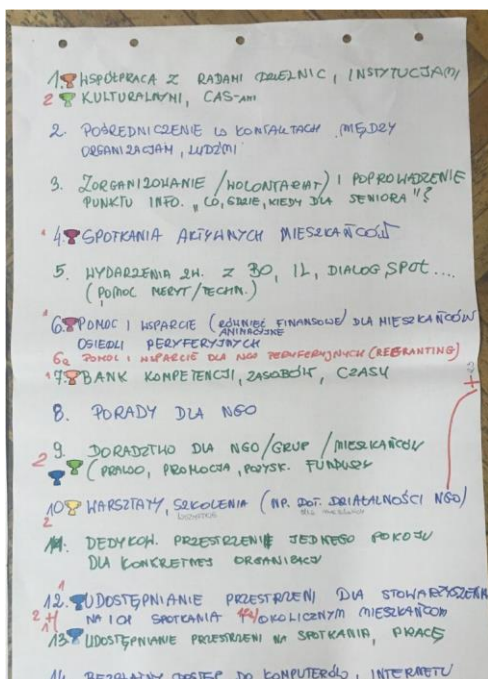 1. WSPÓŁPRACA Z RADAMI DZIELNIC, INSTYTUCJAMI
2 KULTURALNYMI, CAS-ami
2. POŚREDNICZENIE W KONTAKTACH MIĘDZY
ORGANIZACJAMI, LUDŹMI
3. ZORGANIZOWANIE /WOLONTARIAT/ I POPROWADZENIE
PUNKTU INFO. "CO, GDZIE, KIEDY DLA SENIORA"?
4. SPOTKANIA AKTYWNYCH MIESZKAŃCÓW
5. WYDARZENIA ZW. Z BO, IL, DIALOG, SPOT....
(POMOC MERYT/TECHN.)
6. POMOC I WSPARCIE (RÓWNIEŻ FINANSOWE/ DLA MIESZKAŃCÓW
ANIMACYJNE
OSIEDLI PERYFERYJNYCH
6a POMOC I WSPARCIE DLA NGO PERYFERYJNYCH (REGRANTING)
7. BANK KOMPETENCJI, ZASOBÓW, CZASU
8. PORADY DLA NGO
9. DORADZTWO DLA NGO/GRUP/MIESZKAŃCÓW
2 (PRAWO, PROMOCJA, POZYSK. FUNDUSZY
10 WARSZTATY, SZKOLENIA (NP. DOT. DZIAŁALNOŚCI NGO)
2
11. DEDYKOW. PRZESTRZENIE JEDNEGO POKOJU
DLA KONKRETNEJ ORGANIZACJI
12. UDOSTĘPNIANIE PRZESTRZENI DLA STOWARZYSZEŃ
NA ICH SPOTKANIA OKOLICZNYM MIESZKAŃCOM
13. UDOSTĘPNIANIE PRZESTRZENI NA SPOTKANIA, PRACĘ
14. BEZPŁATNY DOSTĘP DO KOMPUTERÓW, INTERNETU